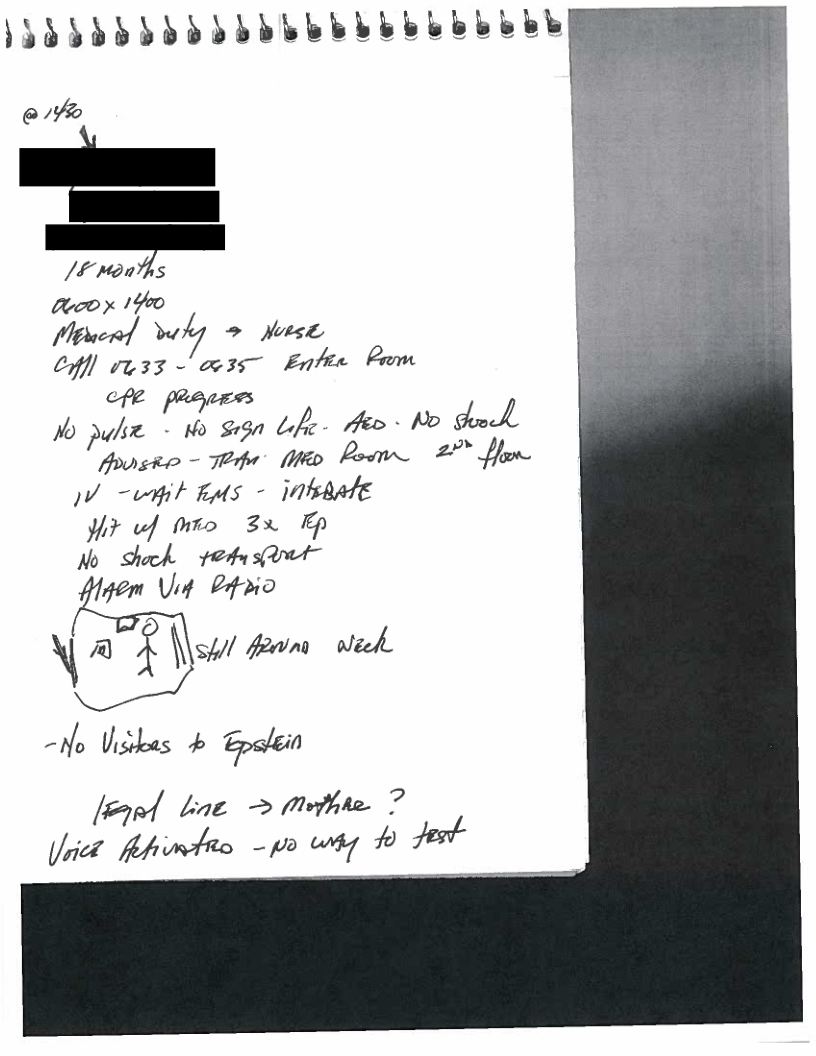 @ 1430
18 Months
0600 x 1400
Medical Duty → Nurse
Call 0633 - 0635 Enter Room
CPR Progress
No pulse - No Sign Life - AED - No Shock
Advised - Tran Med Room 2ND floor
IV - wait EMS - intebate
Hit w/ Med 3x Ep
No Shock transport
Alarm Via Radio
Still Around Neck
- No Visitors to Epstein
legal Line → Mother ?
Voice Activated - No way to test